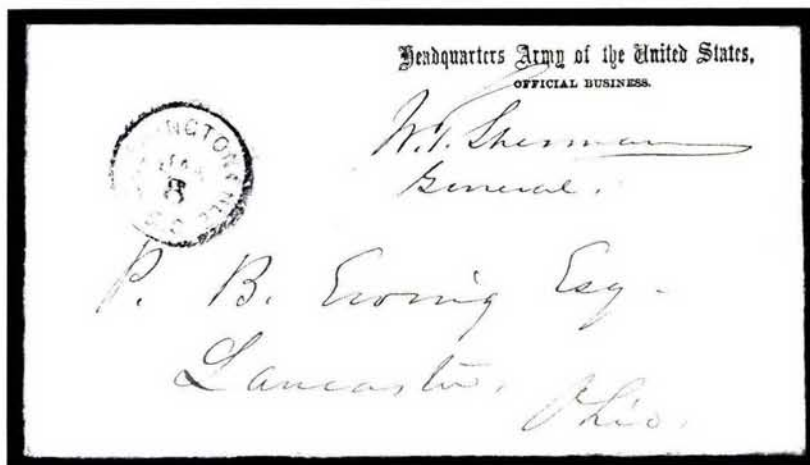 Headquarters Army of the United States,
OFFICIAL BUSINESS.
W. T. Sherman
General.
JAN
8
P. B. Ewing Esq.
Lancaster,
Ohio.